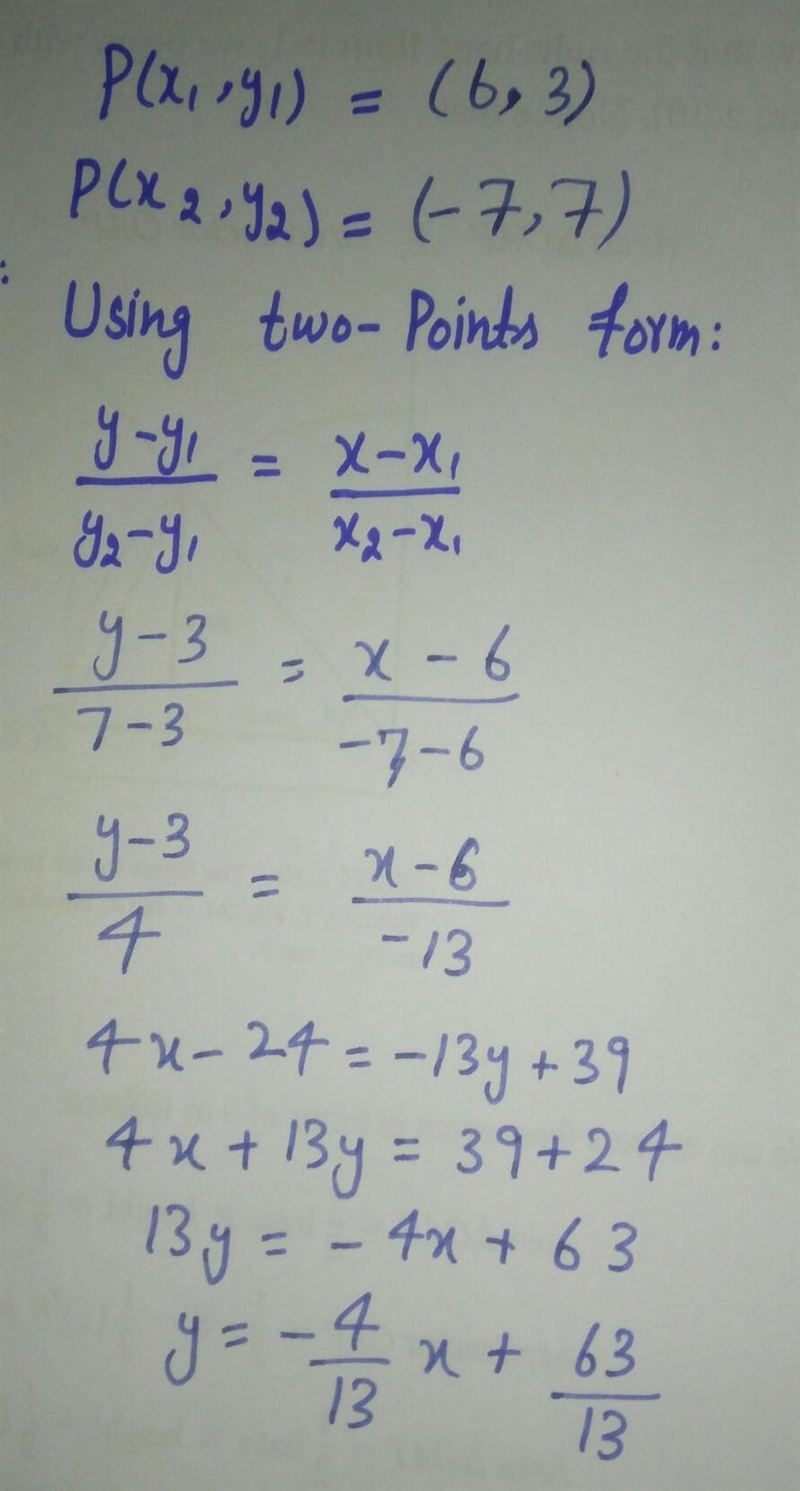 P(x₁,y₁) = (6,3)
P(x₂,y₂) = (-7,7)
Using two-Points form:
y-y₁/y₂-y₁ = x-x₁/x₂-x₁
y-3/7-3 = x-6/-7-6
y-3/4 = x-6/-13
4x-24=-13y+39
4x+13y=39+24
13y=-4x+63
y=-4/13 x+63/13